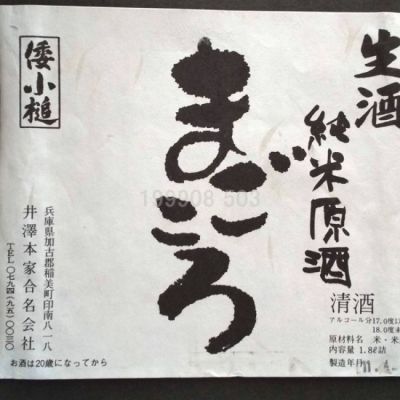 生酒
純米原酒
まごころ
倭小槌
清酒
アルコール分17.0度以
18.0度未
原材料名 米・米
内容量 1.8ℓ詰
製造年月
兵庫県加古郡稲美町印南八―八
井澤本家合名会社
TEL〇七九四(九五)〇〇三〇
お酒は20歳になってから
199908 503